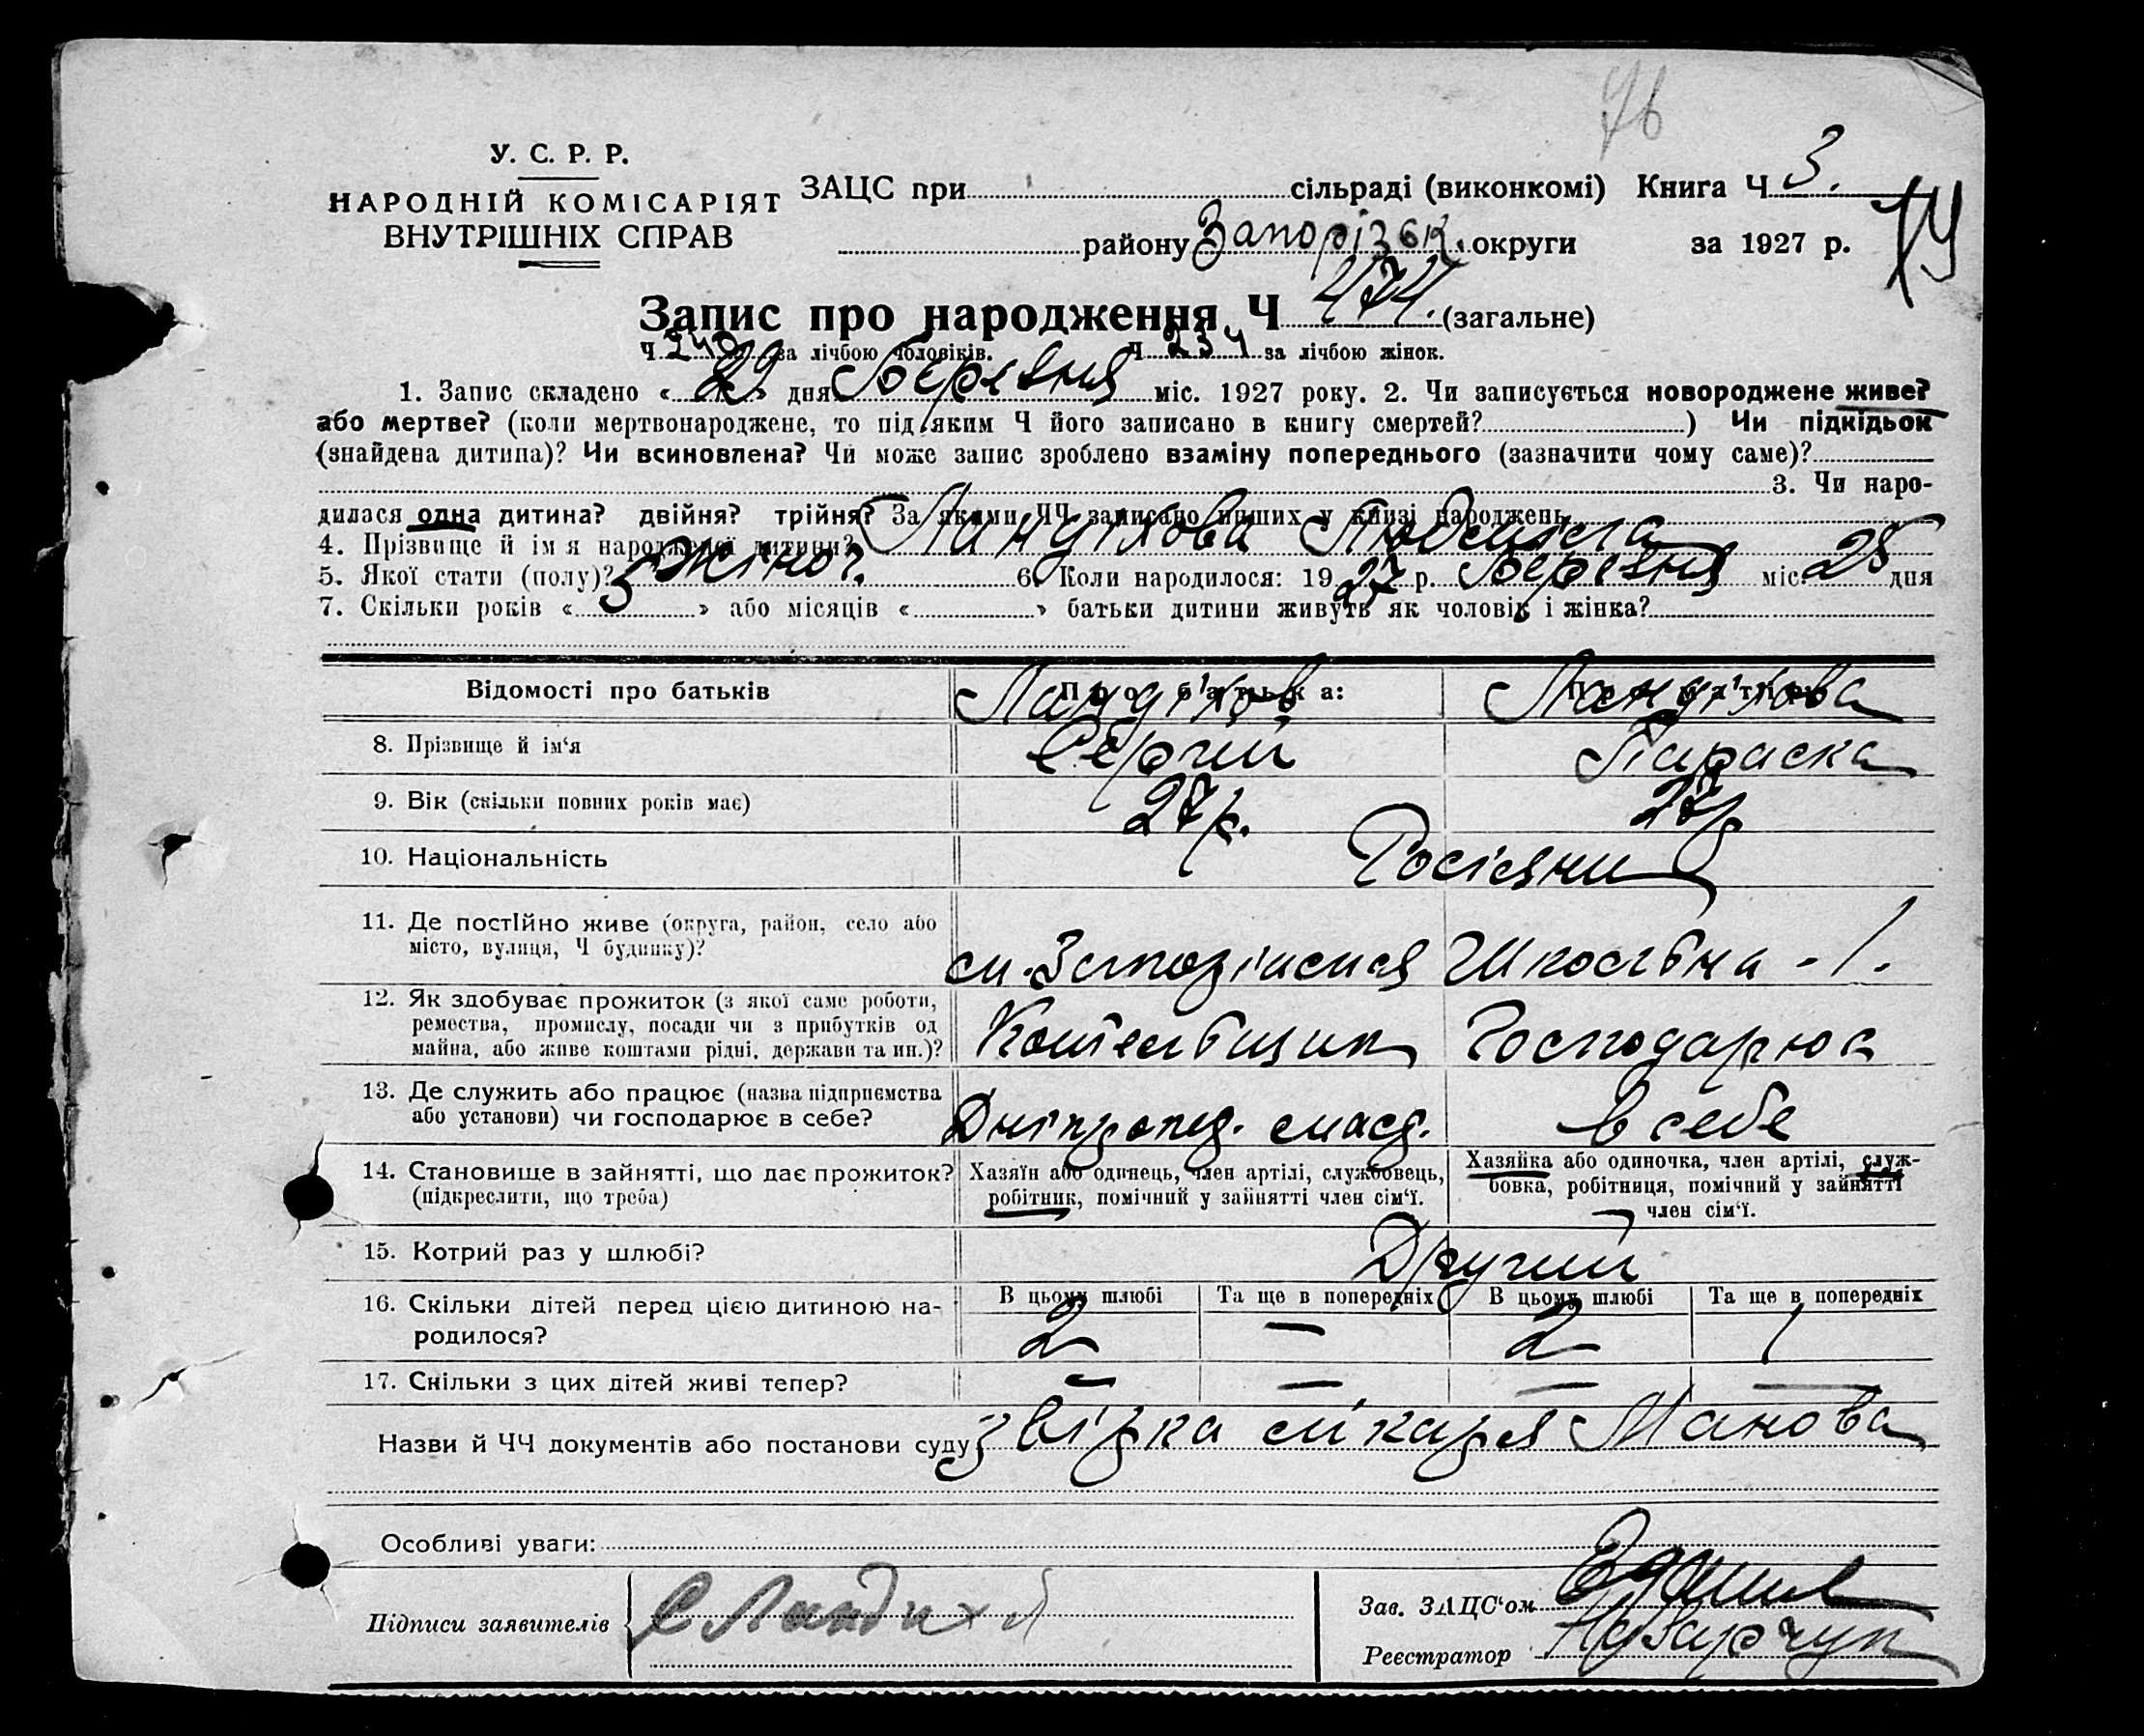 76
У. С. Р. Р.
НАРОДНІЙ КОМІСАРІЯТ
ВНУТРІШНІХ СПРАВ
ЗАЦС при сільраді (виконкомі) Книга Ч 3.
74
району Запорізьк. округи за 1927 р.
Запис про народження Ч 474. (загальне)
Ч 240 за лічбою чоловіків. Ч 234 за лічбою жінок.
1. Запис складено « 29 » дня Березня міс. 1927 року. 2. Чи записується новороджене живе?
або мертве? (коли мертвонароджене, то під яким Ч його записано в книгу смертей? ) Чи підкідьок
(знайдена дитина)? Чи всиновлена? Чи може запис зроблено взаміну попереднього (зазначити чому саме)?
3. Чи наро-
дилася одна дитина? двійня? трійня? За якими ЧЧ записано инших у книзі народжень
4. Прізвище й ім я народженої дитини? Ландіхова Людмила
5. Якої стати (полу)? жіноч. 6. Коли народилося: 1927 р. Березня міс. 28 дня
7. Скільки років « 5 » або місяців « » батьки дитини живуть як чоловік і жінка?
Відомості про батьків Про батька: Про матір:
Ландіхов Ландіхова
8. Прізвище й ім‘я Сергій Параска
9. Вік (скільки повних років має) 27 р. 27 р
10. Національність Росіяни
11. Де постійно живе (округа, район, село або
місто, вулиця, Ч будинку)? Шкільна - 1.
12. Як здобуває прожиток (з якої саме роботи,
ремества, промислу, посади чи з прибутків од
майна, або живе коштами рідні, держави та ин.)? Котельщик Господарює
13. Де служить або працює (назва підприємства
або установи) чи господарює в себе? в себе
14. Становище в зайнятті, що дає прожиток?
(підкреслити, що треба)
Хазяїн або одинець, член артілі, службовець,
робітник, помічний у зайнятті член сім‘ї.
Хазяйка або одиночка, член артілі, служ-
бовка, робітниця, помічний у зайнятті
член сім‘ї.
15. Котрий раз у шлюбі? Другий
16. Скільки дітей перед цією дитиною на-
родилося?
В цьому шлюбі Та ще в попередніх В цьому шлюбі Та ще в попередніх
2 — 2 1
17. Скільки з цих дітей живі тепер? — — — —
Назви й ЧЧ документів або постанови суду звірка лікаря Манова
Особливі уваги:
Підписи заявителів С Ландихов
Зав. ЗАЦС‘ом
Реєстратор